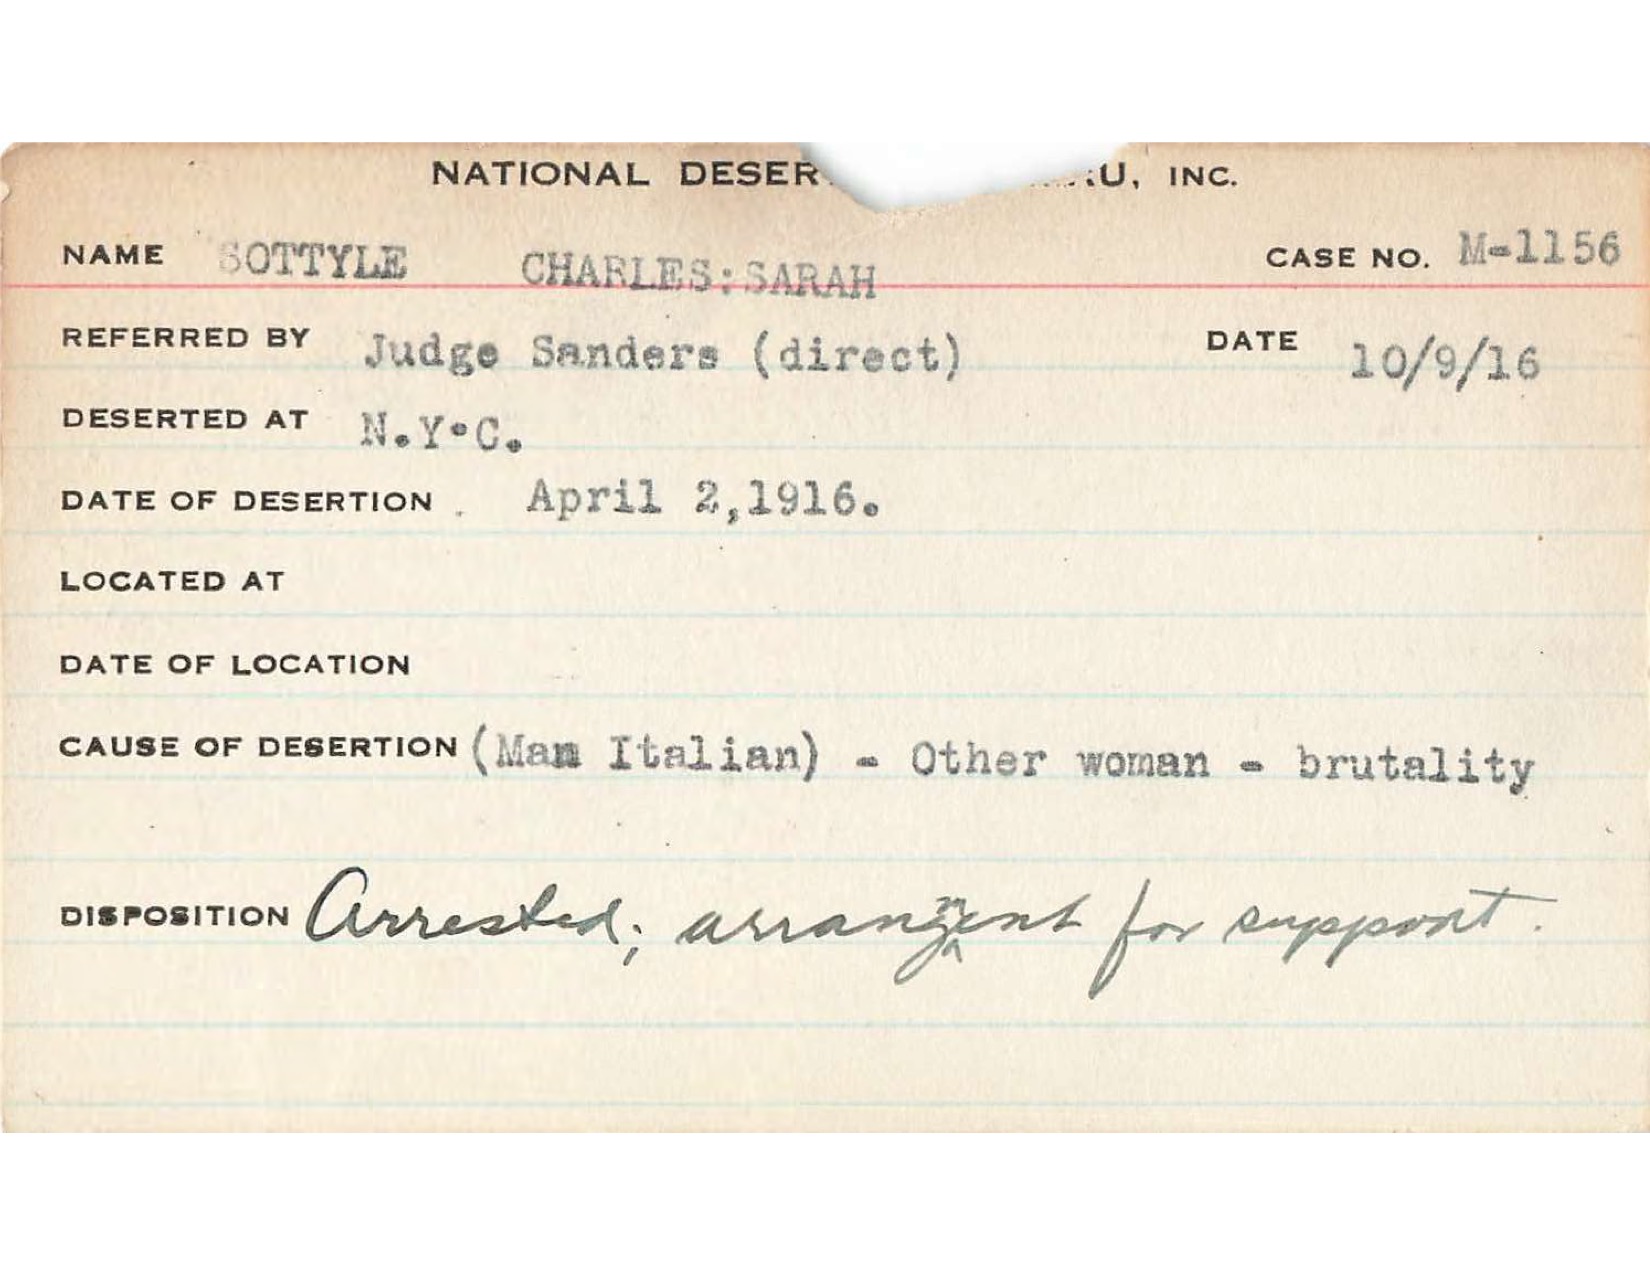 NATIONAL DESER U, INC.
NAME SOTTYLE CHARLES:SARAH CASE NO. M-1156
REFERRED BY Judge Sanders (direct) DATE 10/9/16
DESERTED AT N.Y.C.
DATE OF DESERTION April 2,1916.
LOCATED AT
DATE OF LOCATION
CAUSE OF DESERTION (Man Italian) - Other woman - brutality
DISPOSITION Arrested; arrangment for support.